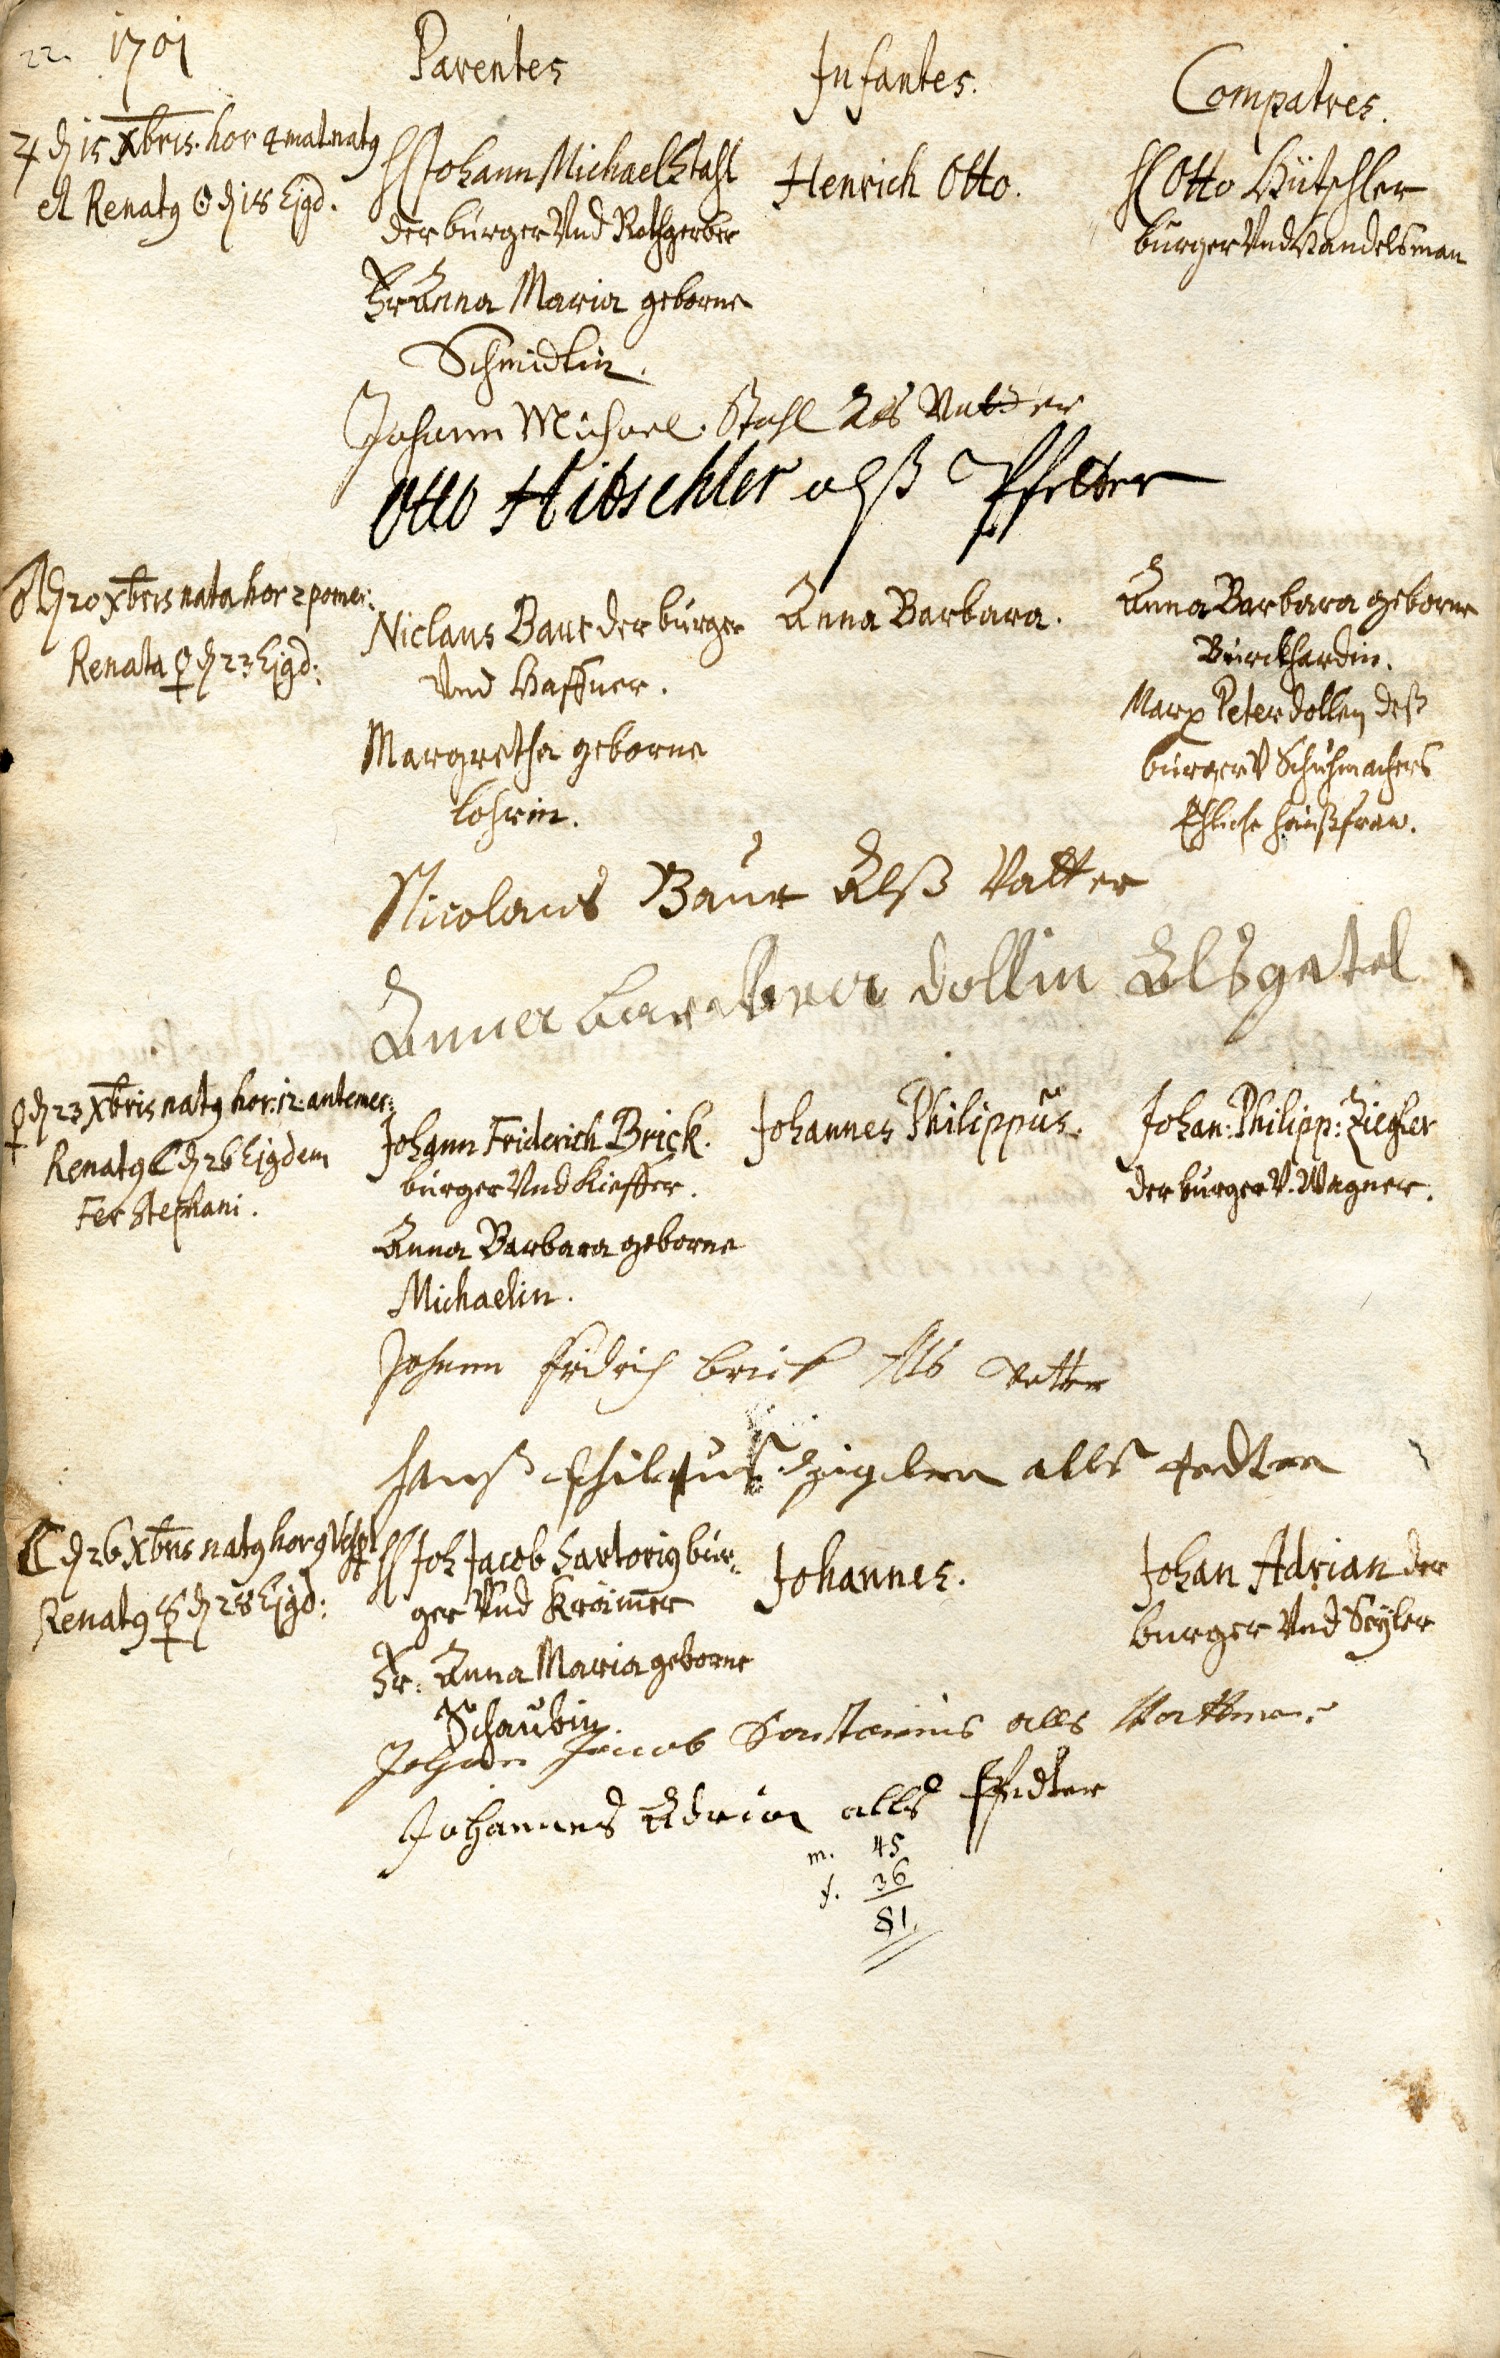 22. 1701
Parentes
Infantes.
Compatres.
♃ ð 15 Xbris. hor 4 mat natꝰ
et Renatꝰ ☉ ð 18 Ejꝰd.
H Johann Michael Stahl
der burger Vnd Rothgerber
Fr Anna Maria geborne
Schmidlin.
Henrich Otto.
H Otto Hütschler
burger Vnd Handelsman
Johann Michael Stahl Als Vatter
Otto Hitschler alß Pfetter
♂ ð 20 Xbris nata hor 2 pomer:
Renata ♀ ð 23 Ejꝰd:
Niclaus Baur der burger
Vnd Haffner.
Margretha geborne
Lohrin.
Anna Barbara.
Anna Barbara geborne
Burckhardin.
Marx Peter Dollen deß
burger V Schuhmachers
Ehliche haußfraw.
Nicolaus Baur Alß Vatter
Anna barbara dollin Als gatel
♀ ð 23 Xbris natꝰ hor: 12. antemer:
Renatꝰ ☾ ð 26 Ejꝰdem
Fer Stephani.
Johann Friderich Brick.
burger Vnd Kieffer.
Anna Barbara geborne
Michaelin.
Johannes Philippus.
Johan: Philipp: Ziegler
der burger V. Wagner.
Johann fridrich brick Als vatter
Hanß philipus zigler alls
☾ ð 26 Xbris natꝰ hor 9
Renatꝰ ☿ ð 28 Ejꝰd:
H Joh Jacob Sartoriꝰ bur-
ger Vnd Krämer
Fr. Anna Maria geborne
Schaubin.
Johannes.
Johan Adrian der
burger Vnd Seyler
Johan Jacob Sartorius alls Vatter
Johannes Adrian alls Pfedter
m. 45
f. 36
81.